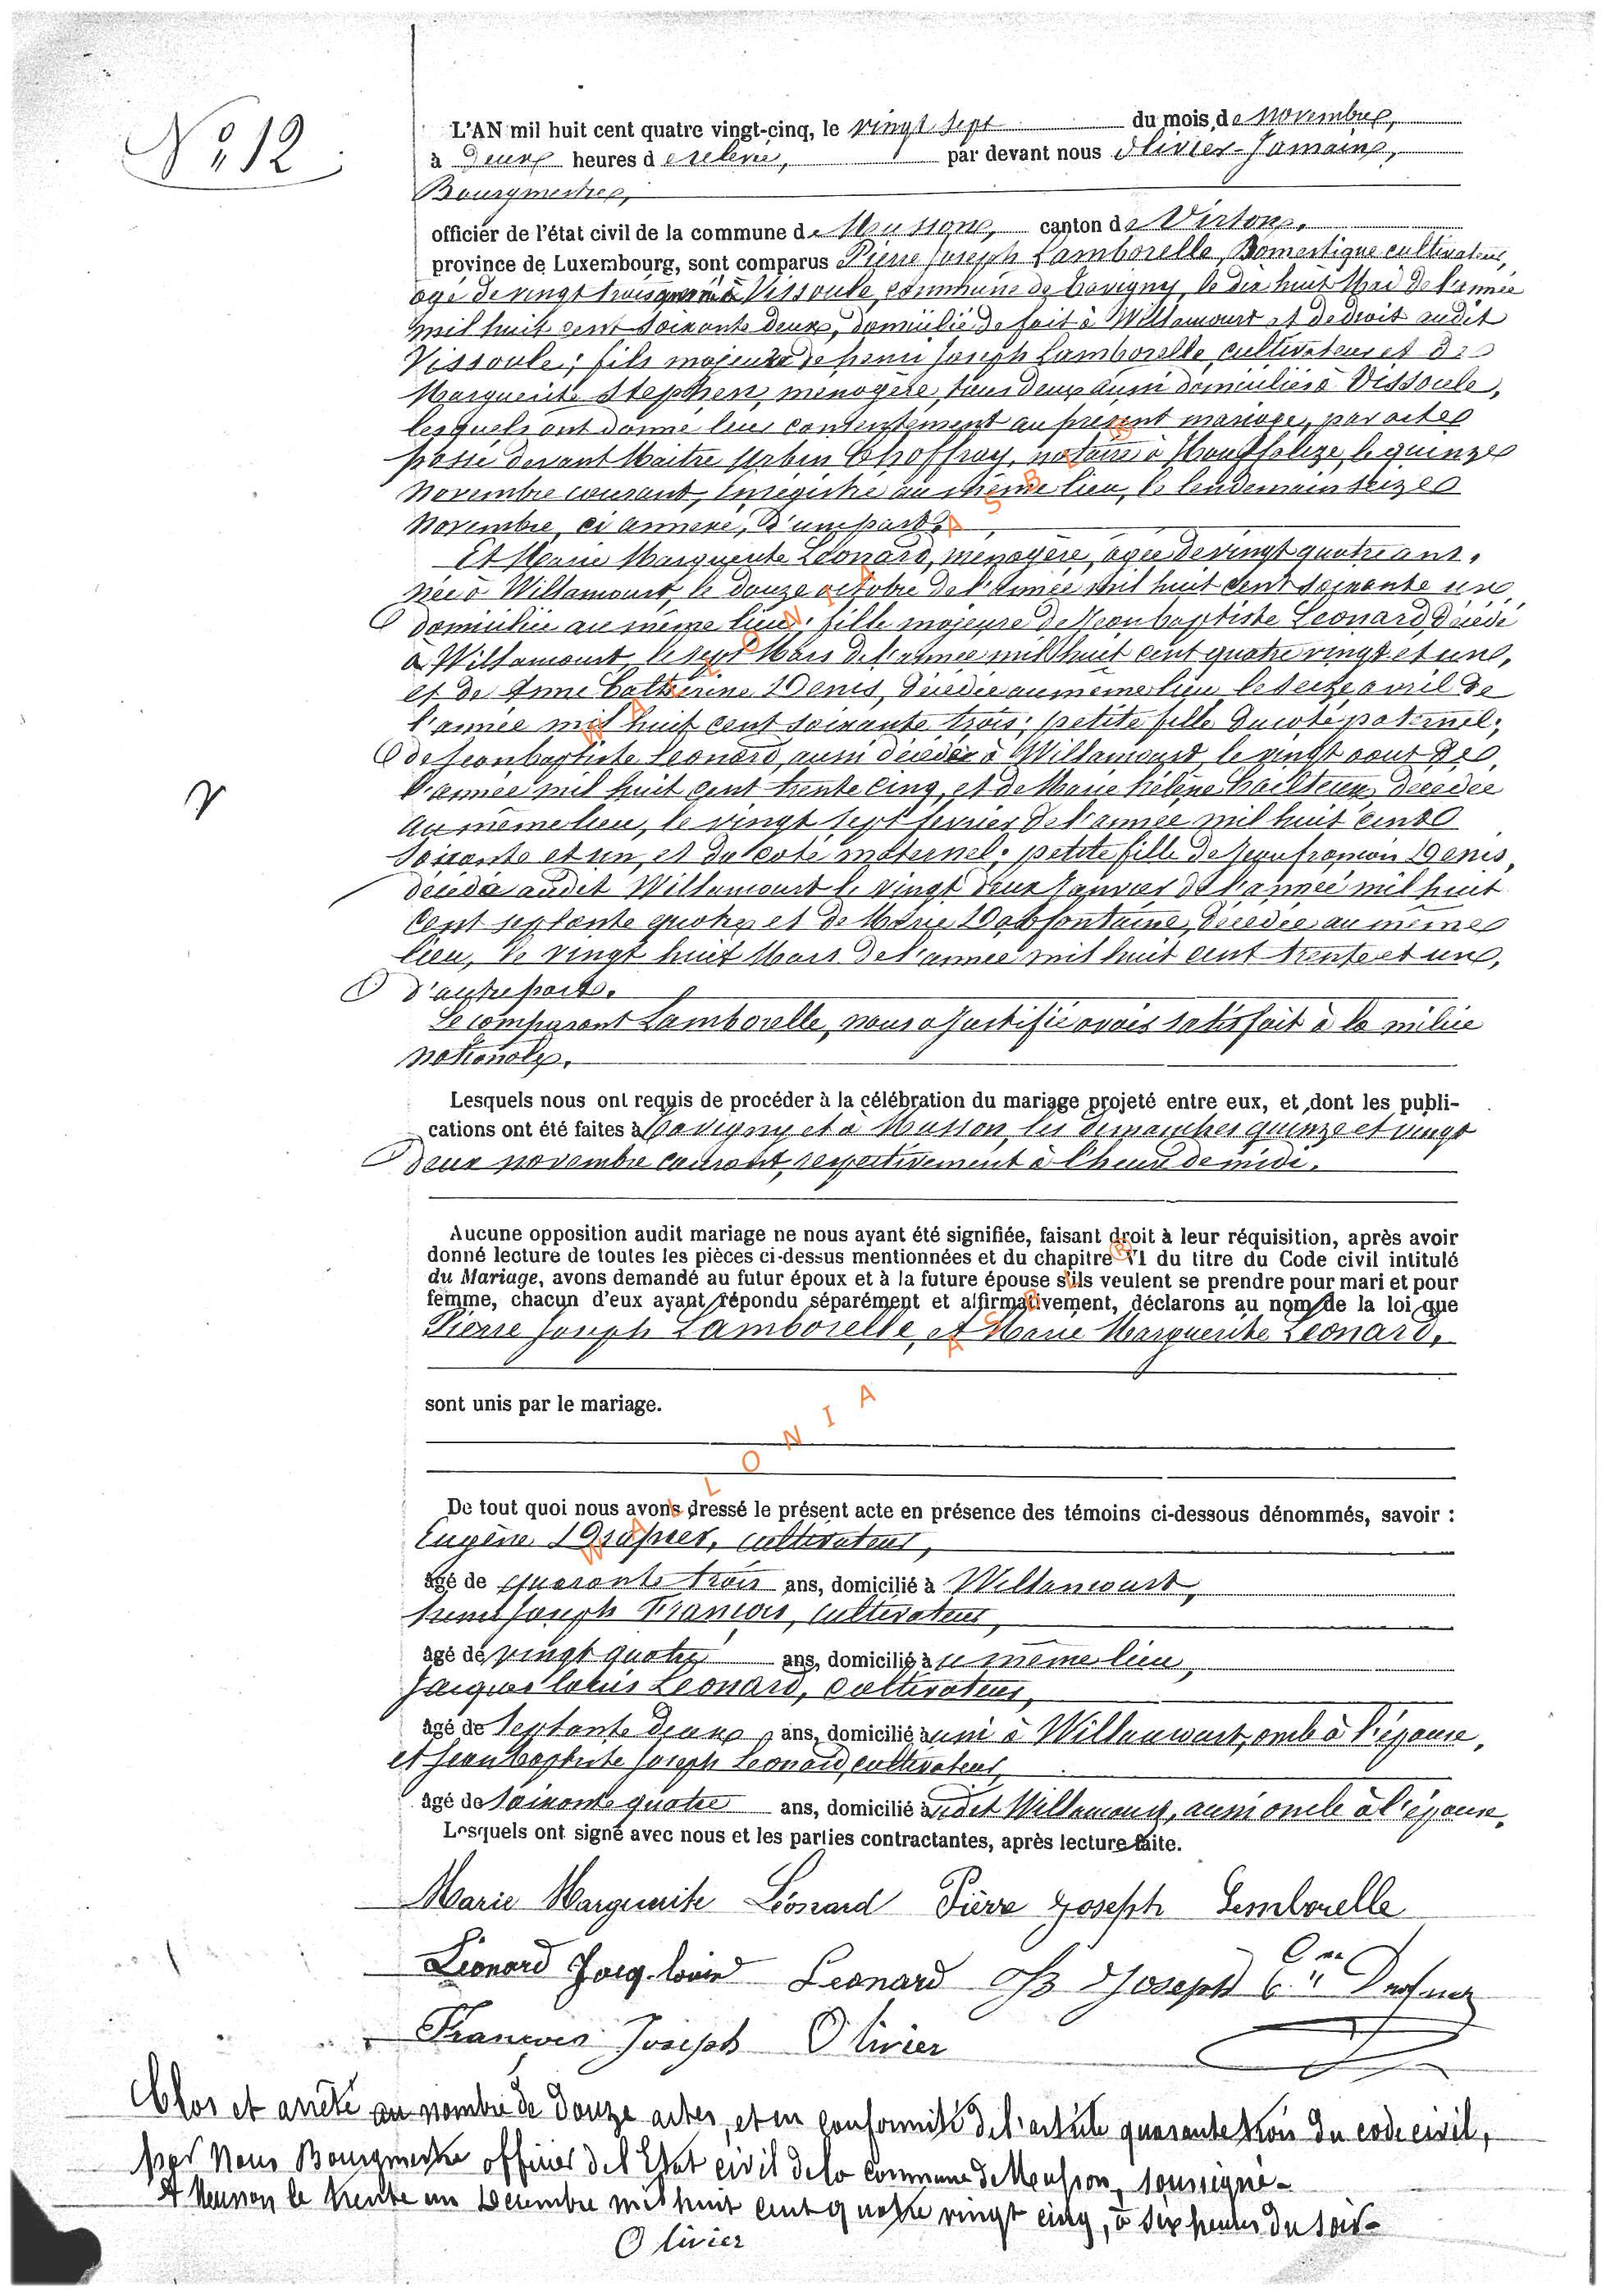 N° 12
L'AN mil huit cent quatre vingt-cinq, le vingt sept du mois de novembre,
à deux heures de relevée, par devant nous Olivier-Jamain,
Bourgmestre,
officier de l'état civil de la commune de Musson, canton de Virton,
province de Luxembourg, sont comparus Pierre Joseph Lamborelle, Domestique cultivateur,
agé de vingt trois ans né à Vissoule, commune de Tavigny, le dix huit Mai de l'année
mil huit cent soixante deux, domicilié de fait à Willancourt et de droit audit
Vissoule; fils majeur de henri Joseph Lamborelle, cultivateur et de
Marguerite Stephen, ménagère, tous deux aussi domiciliés à Vissoule,
lesquels ont donné leur consentement au présent mariage, par acte
passé devant Maitre Urbin Choffray, notaire à Houffalize, le quinze
novembre courant, enregistré au même lieu, le lendemain seize
novembre, ci annexé, d'une part.
Et Marie Marguerite Léonard, ménagère, agée de vingt quatre ans,
née à Willancourt, le douze octobre de l'année mil huit cent soixante un,
domiciliée au même lieu; fille majeure de Jean baptiste Léonard, décédé
à Willancourt, le sept Mars de l'année mil huit cent quatre vingt et un,
et de Anne Catherine Denis, décédée au même lieu le seize avril de
l'année mil huit cent soixante trois; petite fille du coté paternel;
de Jean baptiste Léonard, aussi décédé à Willancourt, le vingt aout de
l'année mil huit cent trente cinq, et de Marie hélène décédée
au même lieu, le vingt sept février de l'année mil huit cent
soixante et un, et du coté maternel; petite fille de Jean françois Denis,
décédé audit Willancourt le vingt deux Janvier de l'année mil huit
cent septante quatre et de Marie Dabfontaine, décédée au même
lieu, le vingt huit Mars de l'année mil huit cent trente et un,
d'autre part.
Le comparant Lamborelle, nous a justifié avoir satisfait à la milice
nationale.
Lesquels nous ont requis de procéder à la célébration du mariage projeté entre eux, et dont les publi-
cations ont été faites à Tavigny et à Musson, les dimanches quinze et vingt
deux novembre courant, respectivement à l'heure de midi.
Aucune opposition audit mariage ne nous ayant été signifiée, faisant droit à leur réquisition, après avoir
donné lecture de toutes les pièces ci-dessus mentionnées et du chapitre VI du titre du Code civil intitulé
du Mariage, avons demandé au futur époux et à la future épouse s'ils veulent se prendre pour mari et pour
femme, chacun d'eux ayant répondu séparément et affirmativement, déclarons au nom de la loi que
Pierre Joseph Lamborelle, et Marie Marguerite Léonard,
sont unis par le mariage.
De tout quoi nous avons dressé le présent acte en présence des témoins ci-dessous dénommés, savoir :
Eugène Drapier, cultivateur,
âgé de quarante trois ans, domicilié à Willancourt,
henri Joseph François, cultivateur,
âgé de vingt quatre ans, domicilié au même lieu,
Jacques louis Léonard, cultivateur,
âgé de septante deux ans, domicilié aussi à Willancourt, oncle à l'épouse,
et Jean baptiste Joseph Léonard, cultivateur,
âgé de soixante quatre ans, domicilié audit Willancourt, aussi oncle à l'épouse.
Lesquels ont signé avec nous et les parties contractantes, après lecture faite.
Marie Marguerite Léonard Pierre Joseph Lamborelle
Léonard Jacq. louis Leonard JB Joseph
François Joseph Olivier
Clos et arrêté au nombre de douze actes, et en conformité de l'article quarante trois du code civil,
par Nous Bourgmestre officier de l'Etat civil de la Commune de Musson, soussigné-
A Musson le trente un Décembre mil huit cent quatre vingt cinq, à six heures du soir-
Olivier
WALLONIA ASBL ®
WALLONIA ASBL ®